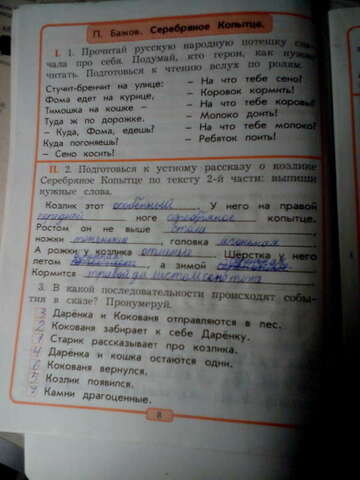 П. Бажов. Серебряное Копытце.
I. 1. Прочитай русскую народную потешку сна-
чала про себя. Подумай, кто герои, как нужно
читать. Подготовься к чтению вслух по ролям.
Стучит-бренчит на улице: – На что тебе сено?
Фома едет на курице, – Коровок кормить!
Тимошка на кошке – – На что тебе коровы?
Туда ж по дорожке. – Молоко доить!
– Куда, Фома, едешь? – На что тебе молоко?
Куда погоняешь? – Ребяток поить!
– Сено косить!
II. 2. Подготовься к устному рассказу о козлике
Серебряное Копытце по тексту 2-й части: выпиши
нужные слова.
Козлик этот особенный. У него на правой
передней ноге серебряное копытце.
Ростом он не выше стола,
ножки тоненькие, головка лёгонькая
А рожки у козлика отличные. Шёрстка у него
летом, а зимой
Кормится травой да листом
3. В какой последовательности происходят собы-
тия в сказе? Пронумеруй.
3 Дарёнка и Кокованя отправляются в лес.
2 Кокованя забирает к себе Дарёнку.
Старик рассказывает про козлика.
4 Дарёнка и кошка остаются одни.
6 Кокованя вернулся.
5 Козлик появился.
Камни драгоценные.
8